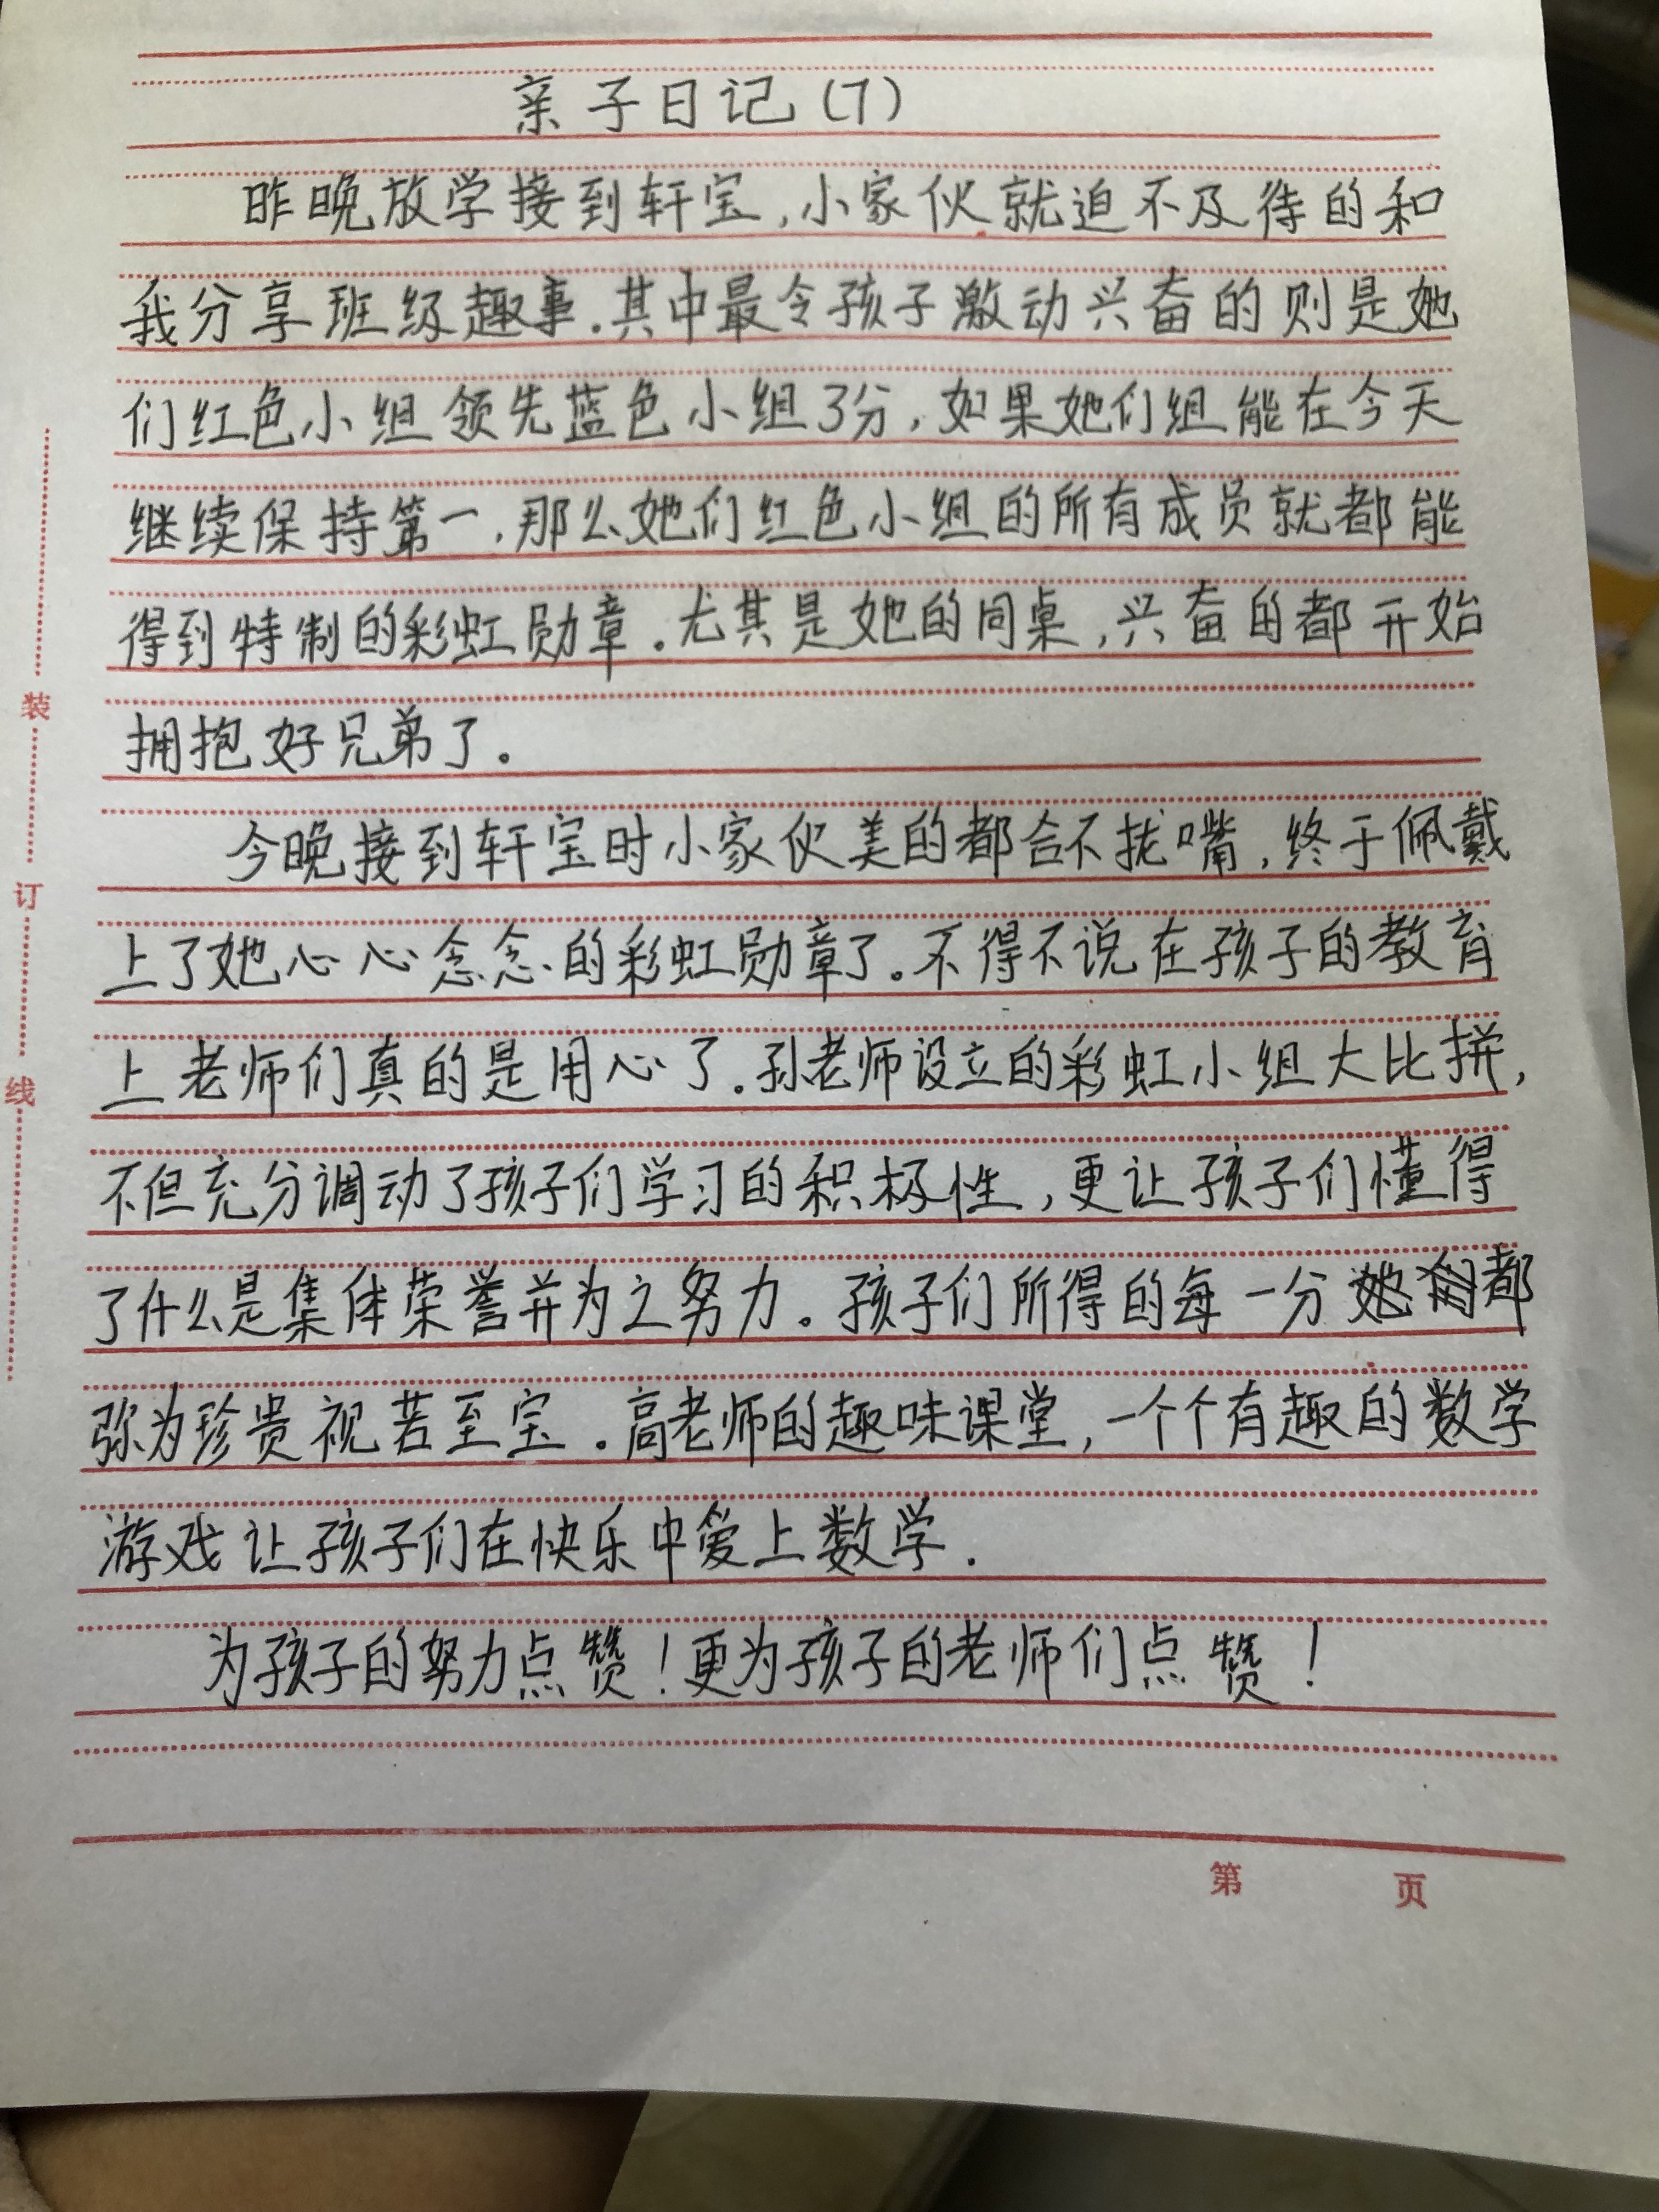 亲子日记(7)
昨晚放学接到轩宝,小家伙就迫不及待的和
我分享班级趣事.其中最令孩子激动兴奋的则是她
们红色小组领先蓝色小组3分,如果她们组能在今天
继续保持第一,那么她们红色小组的所有成员就都能
得到特制的彩虹勋章.尤其是她的同桌,兴奋的都开始
拥抱好兄弟了。
今晚接到轩宝时小家伙美的都合不拢嘴,终于佩戴
上了她心心念念的彩虹勋章了。不得不说在孩子的教育
上老师们真的是用心了.孙老师设立的彩虹小组大比拼,
不但充分调动了孩子们学习的积极性,更让孩子们懂得
了什么是集体荣誉并为之努力。孩子们所得的每一分都
弥为珍贵视若至宝.高老师的趣味课堂,一个个有趣的数学
游戏让孩子们在快乐中爱上数学.
为孩子的努力点赞!更为孩子的老师们点赞!
装
订
线
第 页